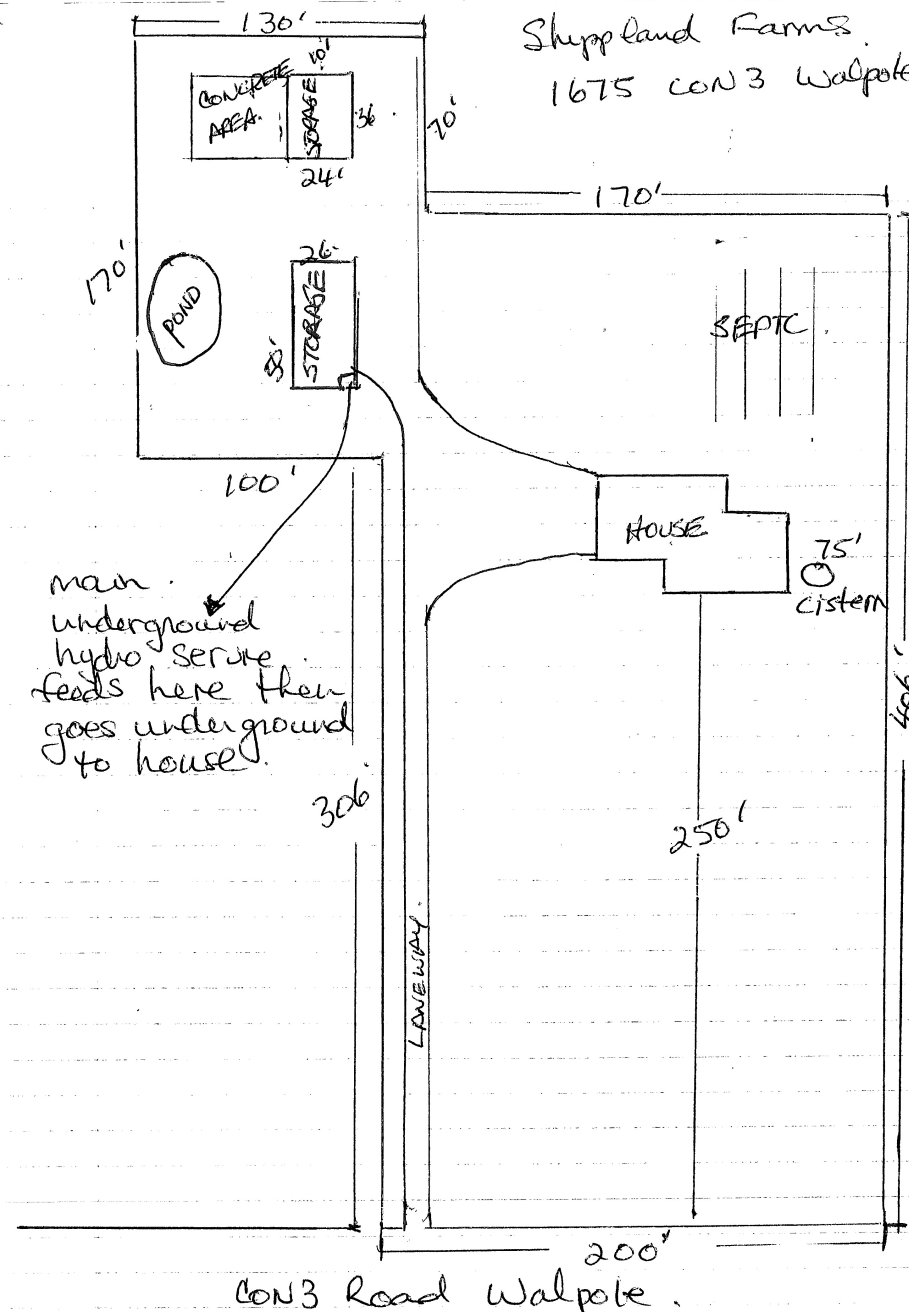 130'
Farms.
1675 CON 3 Walpole
CONCRETE
AREA.
STORAGE
36
24'
70'
170'
170'
POND
26
STORAGE
SEPTC.
100'
HOUSE
75'
cistern
main.
underground
hydro
feeds here then
goes underground
to house.
306'
406'
250'
LANEWAY.
200'
CON3 Road Walpole.